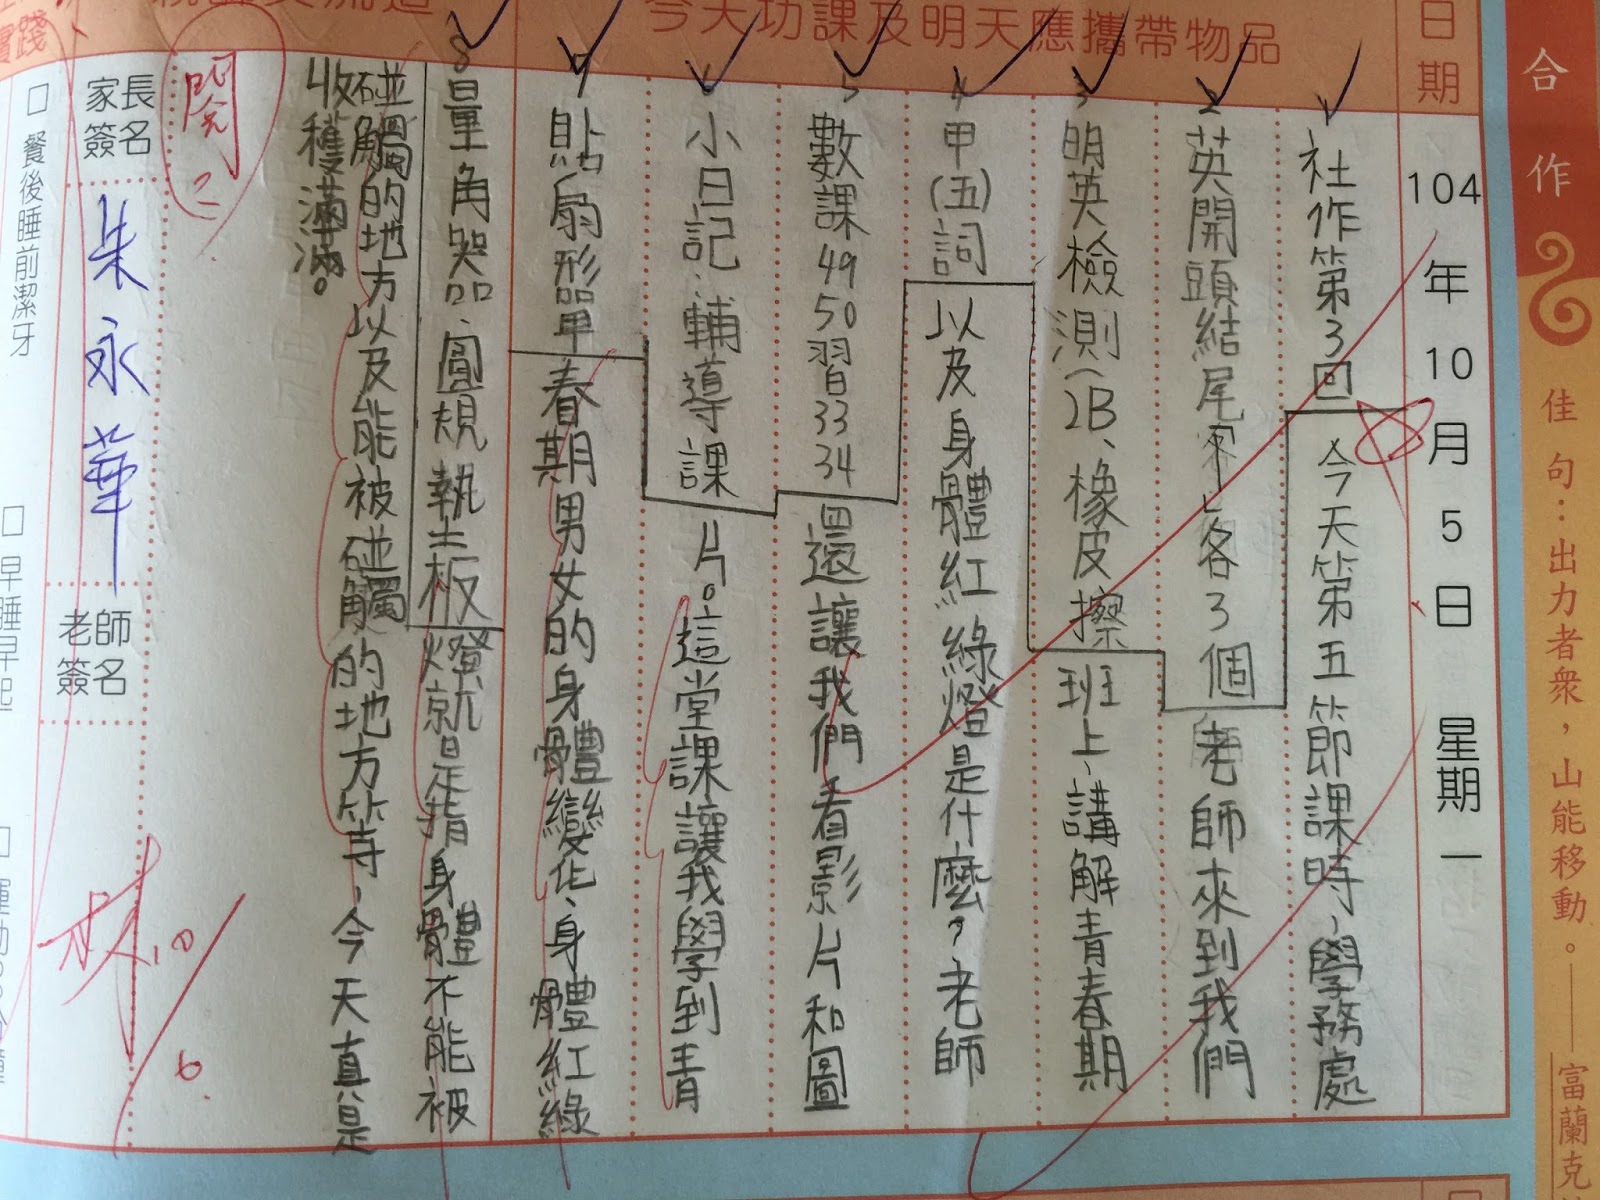 合作
佳句：出力者眾，山能移動。——富蘭克
日期
104年10月5日 星期一
今天功課及明天應攜帶物品
1社作第3回
今天第五節課時、學務處
2英開頭結尾
各3個
老師來到我們
3明英檢測(2B、橡皮擦
班上、講解青春期
4甲(五)詞
以及身體紅綠燈是什麼？老師
5數課49 50習33 34
還讓我們看影片和圖
6小日記：輔導課
片。這堂課讓我學到青
7貼扇形單
春期男女的身體變化、身體紅綠
8量角器、圓規、墊板
燈就是指身體不能被
碰觸的地方以及能被碰觸的地方等，今天真是
收穫滿滿。
閱
家長簽名
朱永華
老師簽名
10/6
□ 餐後睡前潔牙
□ 早睡早起